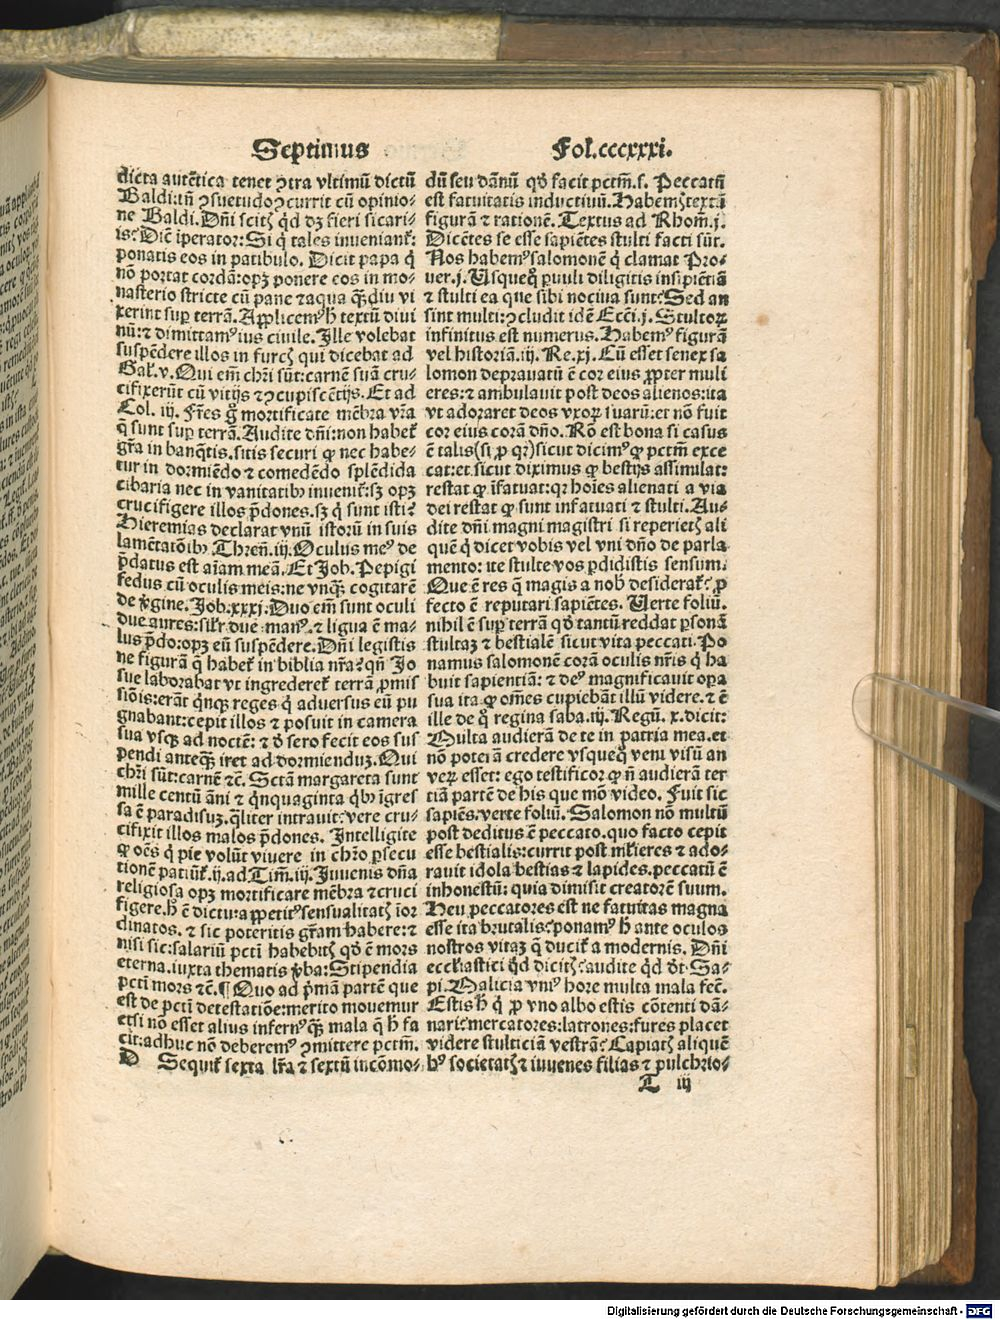 Septimus
Fol. cccxxxi.
dicta autẽtica tenet ꝯtra vltimũ dictũ
Baldi: tñ ꝯsuetudo ꝯcurrit cũ opinio-
ne Baldi. Dñi scitꝭ qd dꝫ fieri sicari-
is: Diẽ iperator: Si q̃ tales inueniant̃:
ponatis eos in patibulo. Dicit papa q̃
nõ portat cordã: opꝫ ponere eos in mo-
nasterio stricte cũ pane ⁊ aqua q̃ꝫdiu vi
xerint sup terrã. Applicemꝰ h̃ textũ diui
nũ: ⁊ dimittamꝰ ius ciuile. Ille volebat
suspẽdere illos in furcꝭ qui dicebat ad
Gal̃. v. Qui em̃ chr̃i sũt: carnẽ suã cru-
cifixerũt cũ vitijs ⁊ ꝯcupiscẽtijs. Et ad
Col. iij. Fr̃es g̊ mortificate mẽbra vr̃a
q̃ sunt sup terrã. Audite dñi: non habet̃
gr̃a in banq̃tis. sitis securi ꝙ nec habe-
tur in dormiẽdo ⁊ comedẽdo splẽdida
cibaria nec in vanitatibꝫ inuenit̃: sꝫ opꝫ
crucifigere illos p̃dones. sꝫ q̃ sunt isti?
Hieremias declarat vnũ istorũ in suis
lamẽtatõibꝫ Thren̄. iij. Oculus meꝰ de
p̃datus est aĩam meã. Et Job. Pepigi
fedus cũ oculis meis: ne vnq̃ꝫ cogitarẽ
de v̓gine. Job. xxxj. Duo em̃ sunt oculi
due aures: sil̃r due manꝰ. ⁊ ligua ẽ ma-
lus p̃do: opꝫ eũ suspẽdere. Dñi legistis
ne figurã q̃ habet̃ in biblia nr̃a? qñ Jo
sue laborabat vt ingrederet̃ terrã ꝓmis
siõis: erãt q̃nqꝫ reges q̃ aduersus eũ pu
gnabant: cepit illos ⁊ posuit in camera
sua vsqꝫ ad noctẽ: ⁊ d̓ sero fecit eos sus
pendi anteq̃ꝫ iret ad dormienduꝫ. Qui
chr̃i sũt: carnẽ ⁊c̃. Sctã margareta sunt
mille centũ ãni ⁊ q̃nquaginta q̃bꝫ ĩgres
sa ẽ paradisuꝫ. q̃liter intrauit: vere cru-
cifixit illos malos p̃dones. Intelligite
ꝙ oẽs q̃ pie volũt viuere in chr̃o ꝑsecu
tionẽ patiũt̃. ij. ad Tim̃. iij. Iuuenis dña
religiosa opꝫ mortificare mẽbra ⁊ cruci
figere. h̃ ẽ dictu: appetitꝰ sensualitatꝭ ĩor
dinatos. ⁊ sic poteritis gr̃am habere: ⁊
nisi sic: salariũ pcti habebitꝭ qd̓ ẽ mors
eterna. iuxta thematis v̓ba: Stipendia
pcti mors ⁊c̃. ¶ Quo ad p̃mã partẽ que
est de pcti detestatiõe: merito mouemur
etsi nõ esset alius infernꝰ q̃ꝫ mala q̃ h̃ fa
cit: adhuc nõ deberemꝰ ꝯmittere pctm̃.
D Sequit̃ sexta lr̃a ⁊ sextũ incõmo-
dũ seu dãnũ qd̓ facit pctm̃. s. Peccatũ
est fatuitatis inductiuũ. Habemꝰ textũ
figurã ⁊ rationẽ. Textus ad Rhom̃. j.
Dicẽtes se esse sapiẽtes stulti facti sũt.
Nos habemꝰ salomonẽ q̃ clamat Pro-
uer. j. Usquequo ꝑuuli diligitis insipiẽtiã
⁊ stulti ea que sibi nociua sunt? Sed an
sint multi: ꝯcludit idẽ Eccĩ. j. Stultoꝝ
infinitus est numerus. Habemꝰ figurã
vel historiã. iij. Re. xj. Cũ esset senex sa
lomon deprauatũ ẽ cor eius ꝓpter muli
eres: ⁊ ambulauit post deos alienos: ita
vt adoraret deos vxoꝝ suarũ: et nõ fuit
cor eius corã dño. Rõ est bona si casus
ẽ talis (si ꝓ qꝛ) sicut dicimꝰ ꝙ pctm̃ exce
cat: et sicut diximus ꝙ bestijs assimilat:
restat ꝙ ĩfatuat: qꝛ hoĩes alienati a via
dei restat ꝙ sunt infatuati ⁊ stulti. Au-
dite dñi magni magistri si reperietꝭ ali
quẽ q̃ dicet vobis vel vni dño de parla
mento: ite stulte vos ꝑdidistis sensum.
Que ẽ res q̃ magis a nob̓ desiderat̃? ꝓ
fecto ẽ reputari sapiẽtes. Uerte foliũ.
nihil ẽ sup terrã qd̓ tantũ reddat ꝑsonã
stultaꝫ ⁊ bestialẽ sicut vita peccati. Po
namus salomonẽ corã oculis nr̃is q̃ ha
buit sapientiã: ⁊ deꝰ magnificauit opa
sua ita ꝙ om̃es cupiebãt illũ videre. ⁊ ẽ
ille de q̊ regina saba. iij. Regũ. x. dicit:
Multa audierã de te in patria mea. et
nõ poterã credere vsquequo veni visũ an
veꝝ esset: ego testificor ꝙ ñ audierã ter
tiã partẽ de his que mõ video. Fuit sic
sapiẽs. verte foliũ. Salomon nõ multũ
post deditus ẽ peccato. quo facto cepit
esse bestialis: currit post ml̃ieres ⁊ ado-
rauit idola bestias ⁊ lapides. peccatũ ẽ
inhonestũ: quia dimisit creatorẽ suum.
Heu peccatores est ne fatuitas magna
esse ita brutalis: ponamꝰ h̃ ante oculos
nostros vitaꝫ q̃ ducit̃ a modernis. Dñi
eccl̃iastici qd dicitꝭ? audite qd d̓t Sa-
pi. Malicia vniꝰ hore multa mala fec̃.
Estis h̃ q̃ ꝓ vno albo estis cõtenti dã-
nari: mercatores: latrones: fures placet
videre stulticiã vestrã? Capiatꝭ aliquẽ
hꝰ societatꝭ ⁊ iuuenes filias ⁊ pulchrio-
T iij
Digitalisierung gefördert durch die Deutsche Forschungsgemeinschaft - DFG